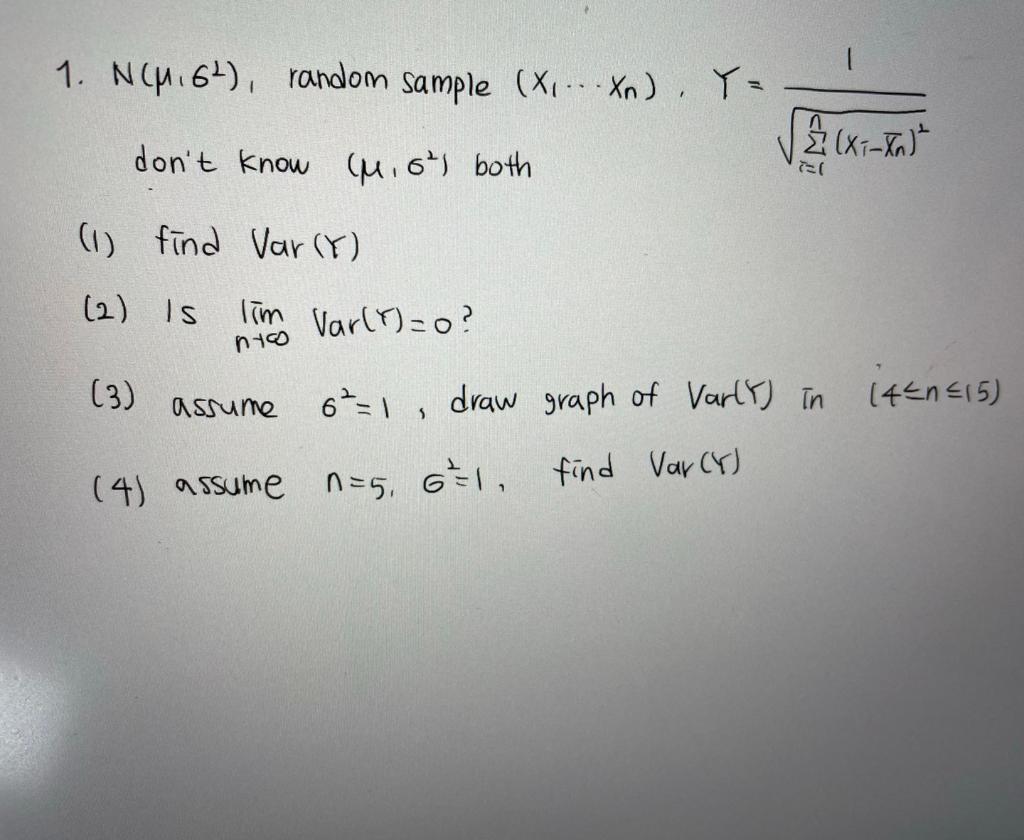 1. N(μ, σ²), random sample (X₁ ··· Xn), Y = 1 / √( Σ_{i=1}^{n} (Xi − X̄n)² )
don't know (μ, σ²) both
(1) find Var(Y)
(2) Is lim_{n→∞} Var(Y) = 0?
(3) assume σ² = 1, draw graph of Var(Y) in (4 ≤ n ≤ 15)
(4) assume n = 5, σ² = 1, find Var(Y)